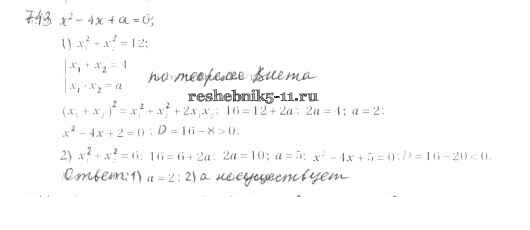 743 x² - 4x + a = 0;
1) x₁² - x₂² = 12;
x₁ + x₂ = 4
x₁ · x₂ = a
по теореме Виета
reshebnik5-11.ru
(x₁ + x₂)² = x₁² + x₂² + 2x₁x₂; 16 = 12 + 2a; 2a = 4; a = 2;
x² - 4x + 2 = 0; D = 16 - 8 > 0;
2) x₁² + x₂² = 6; 16 = 6 + 2a; 2a = 10; a = 5; x² - 4x + 5 = 0; D = 16 - 20 < 0.
Ответ: 1) a = 2; 2) a не существует